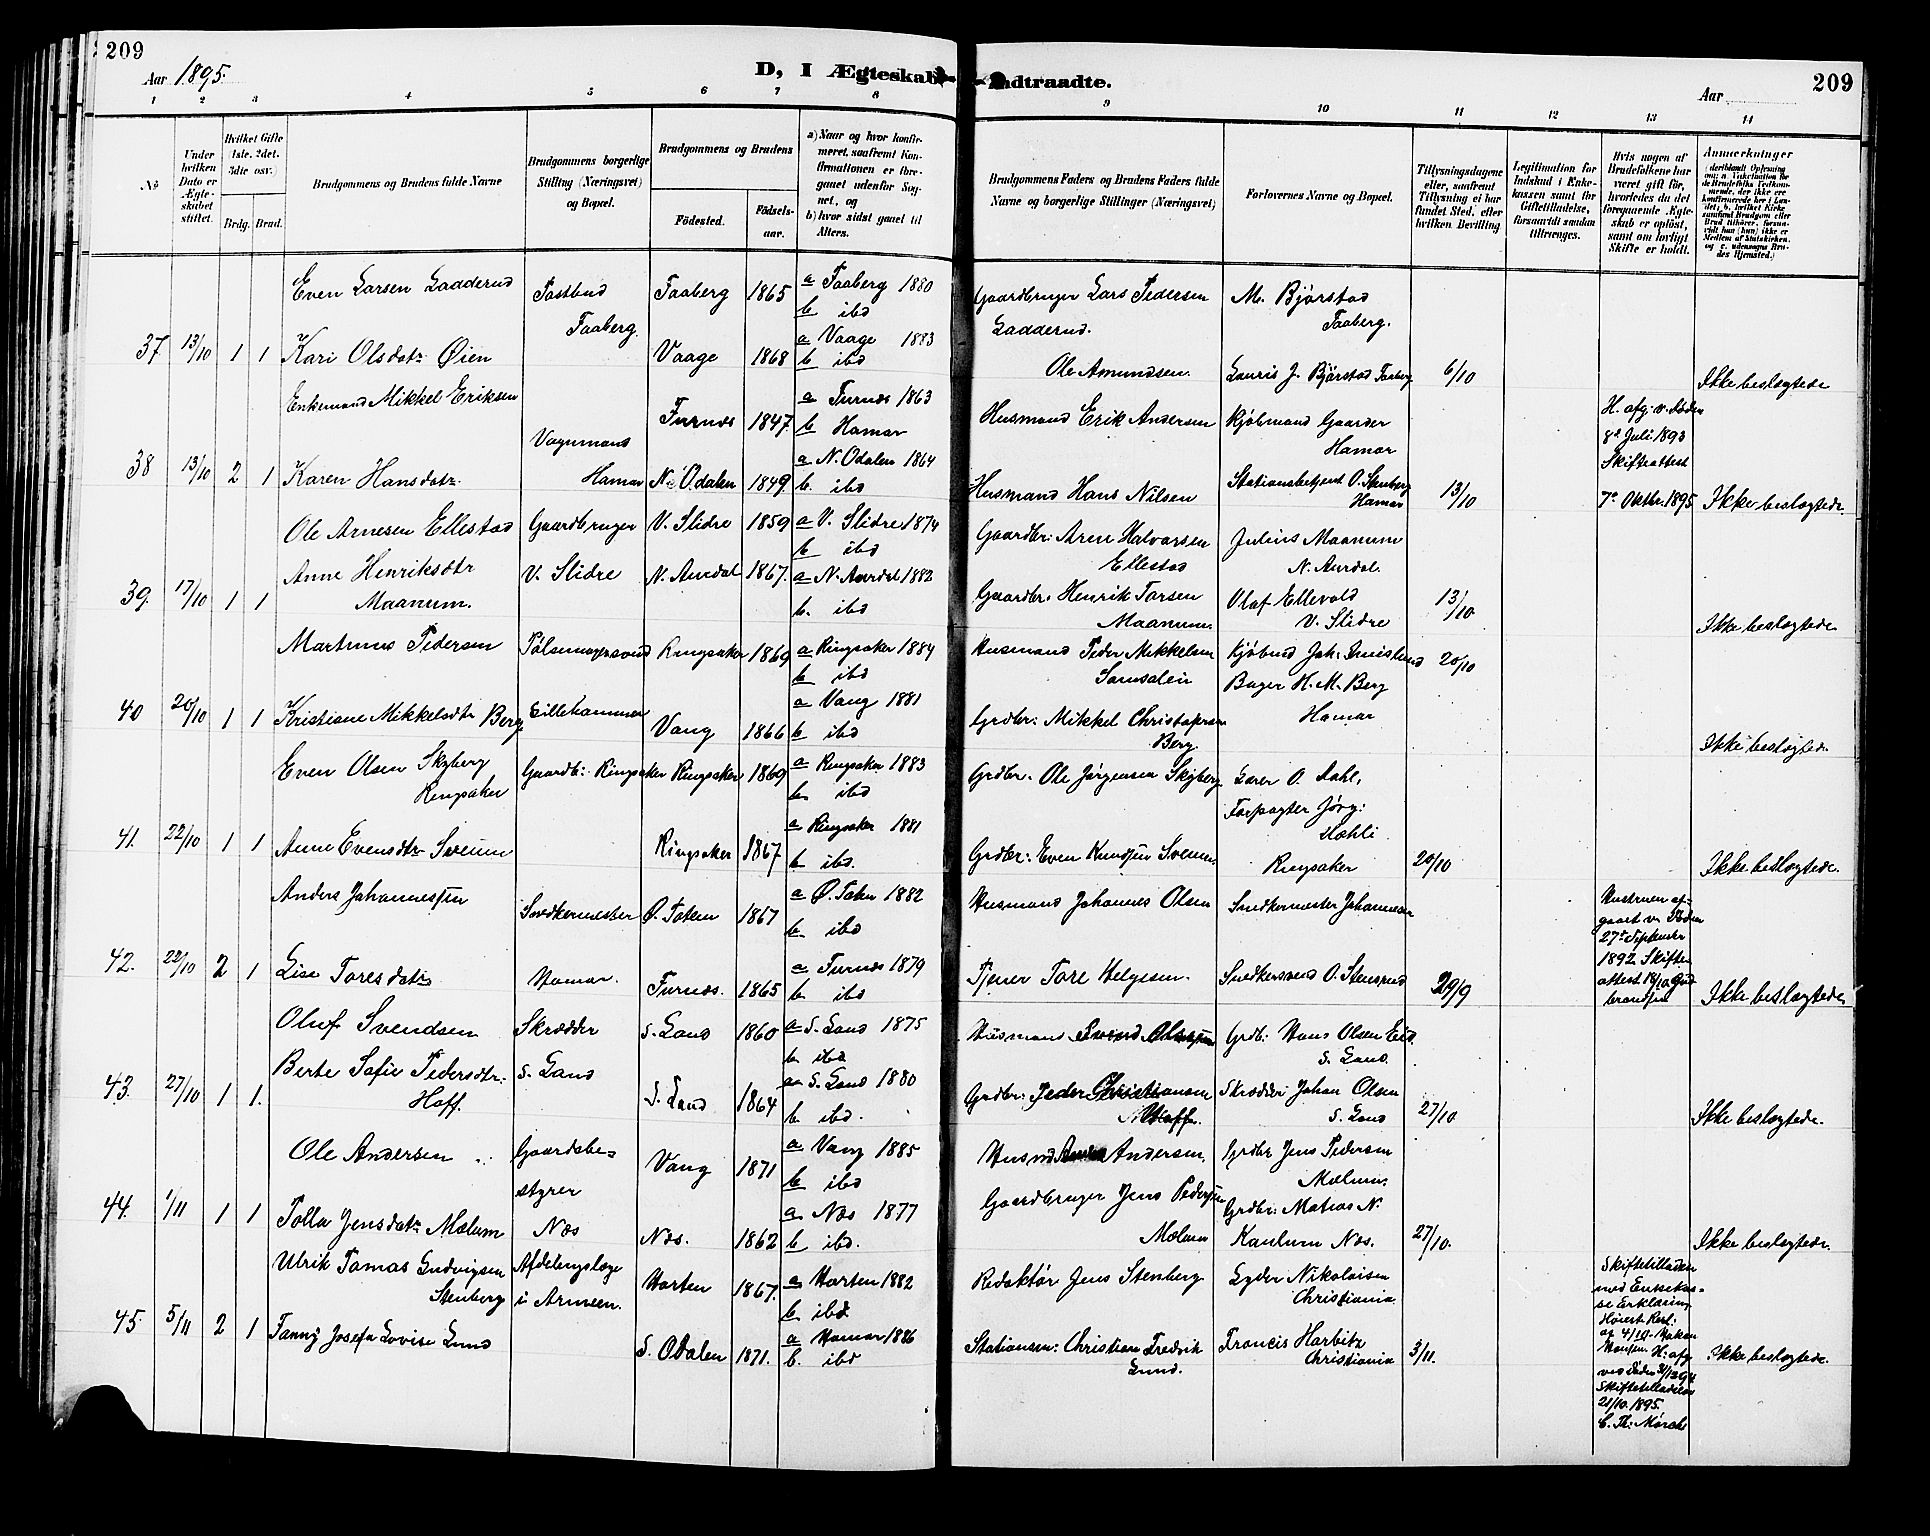 209
Aar 1895.
D, I Ægteskab Indtraadte.
Aar
209
1 2 3 4 5 6 7 8 9 10 11 12 13 14
No
Under hvilken Dato er Ægteskabet stiftet.
Hvilket Gifte (1ste. 2det. 3die osv.)
Brdg. Brud.
Brudgommens og Brudens fulde Navne
Brudgommens borgerlige Stilling (Næringsvei) og Bopæl.
Brudgommens og Brudens
Födested. Födsels-aar.
a) Naar og hvor konfirmeret, saafremt Konfirmationen er foregaaet udenfor Sognet, og
b) hvor sidst gaaet til Alters.
Brudgommens Faders og Brudens Faders fulde Navne og borgerlige Stillinger (Næringsvei)
Forlovernes Navne og Bopæl.
Tillysningsdagene eller, saafremt Tillysning ei har fundet Sted, efter hvilken Bevilling
Legitimation for Indskud i Enkekassen samt for Giftetilladelse, forsaavidt saadan tiltrænges.
Hvis nogen af Brudefolkene har været gift för, hvorledes da det foregaaende Ægteskab er oplöst, samt om lovligt Skifte er holdt.
Anmerkninger
37 13/10 1 1
Even Larsen Ladderud
Postbud Faaberg
Faaberg 1865
a Faaberg 1880
b ibd
Gaardbruger Lars Pedersen Ladderud.
M. Bjørstad Faaberg.
Kari Olsdatr Øien
Vaage 1868
a Vaage 1883
b ibd
Ole Amundsen.
Lauris J. Bjørstad Faaberg
6/10
Ikke beslægtede
38 13/10 2 1
Enkemand Mikkel Eriksen
Vognmand Hamar
Furnes 1847.
a Furnes 1863
b Hamar
Husmand Erik Andersen
Kjøbmand Gaarder Hamar
H. afg. v. Døden
8d Juli 1893
Skifteattest
7de Oktbr. 1895
Karen Hansdatr.
N. Odalen 1849.
a N. Odalen 1864
b. ibd
Husmand Hans Nilsen
Stationsbetjent O. Stenberg Hamar
13/10
Ikke beslægtede.
39. 17/10 1 1
Ole Arnesen Ellestad
Gaardbruger V. Slidre
V. Slidre 1859
a V. Slidre 1874
b ibd
Gaardbr: Arne Halvorsen Ellestad
Julius Maanum N. Aurdal.
Anne Henriksdtr Maanum.
N. Aurdal 1867.
a N. Aurdal 1882
b. ibd
Gaardbr. Henrik Torsen Maanum.
Olaf Ellevold V. Slidre
13/10
Ikke beslægtede.
40 20/10 1 1
Martinus Pedersen
Pølsemagersvend Lillehammer
Ringsaker 1869
a Ringsaker 1884
b ibd
Husmand Peder Mikkelsen
20/10
Kristiane Mikkelsdtr Berg
Vang 1866
a Vang 1881
b ibd
Grdbr: Mikkel Christophersen Berg.
Bager H. M. Berg Hamar
Ikke beslægtede.
41. 22/10 1 1
Even Olsen Skyberg Ringsaker
Gaardb: Ringsaker
Ringsaker 1869
a Ringsaker 1883
b. ibd
Grdbr. Ole Jørgensen Skyberg
Lærer O. Dahl,
Forpagter Jørg: Hæhli
Anne Evensdtr Sveum
Ringsaker 1867
a Ringsaker 1881
b ibd.
Grdbr: Even Knudsen Sveum.
Ringsaker
20/10
Ikke beslægtede.
42. 22/10 2 1
Anders Johannessen
Snedkermester Hamar.
Ø. Toten 1867
a Ø. Toten 1882
b. ibd
Husmand Johannes Olsen
Snedkermester Johannesen
Hustruen afgaaet v. Døden
27de September
1892. Skifteattest 18/10 Gudbrandsen
Lise Toresdatr
Furnes. 1865
a Furnes 1879
b. ibd
Tjener Tore Helgesen.
Snedkersvend O. Stensrud
29/9
Ikke beslægtede
43. 27/10 1 1.
Oluf Svendsen
Skrædder S. Land
S. Land 1860
a S. Land 1875
b. ibd
Husmand Svend Olsen
Grdb: Hans Olsen Eid. S. Land.
Berte Sofie Pedersdtr. Hoff.
S. Land 1864
a S. Land 1880
b ibd.
Grdbr: Peder Christiansen Hoff.
Skrædder Johan Olsen S. Land
27/10
Ikke beslægtede.
44. 1/11 1 1
Ole Andersen
Gaardsbestyrer Næs
Vang 1871
a Vang 1885
b ibd
Husmd Anders Andersen.
Grdbr Jens Pedersen Mælum.
Tolla Jensdatr Mælum
Næs. 1862
a. Næs 1877
b. ibd.
Gaardbruger Jens Pedersen Mælum
Grdbr: Matias N. Kaulum Næs.
27/10.
Ikke beslægtede.
45. 5/11 2 1
Ulrik Tomas Ludvigsen Stenberg
Afdelingslæge i Armeen.
Horten 1867.
a Horten 1882
b ibd.
Redaktør Jens Stenberg
Lyder Nikolaisen Christiania.
Skiftetilladelse
med Enkekasse Erklæring
af 4/10
ved Døden 31/12 94
Skiftetilladelse
21/10. 1895.
C. Th. Mørch
Fanny Josefa Lovise Lund
S. Odalen 1871.
a Hamar 1886
b. ibd
Stationsm: Christian Fredrik Lund.
Francis Harbitz Christiania
3/11.
Ikke beslægtede.